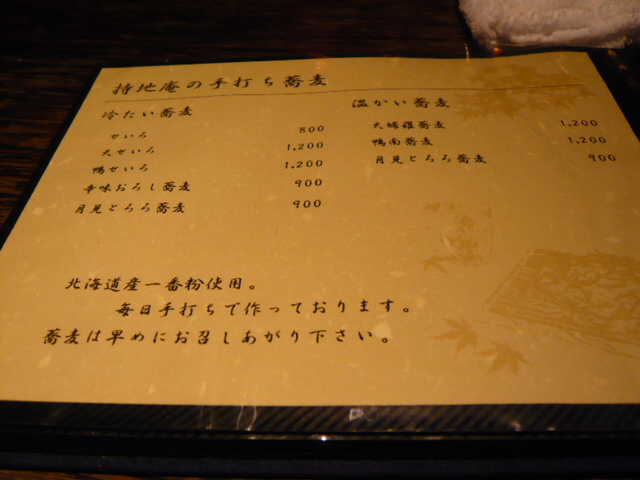 持地庵の手打ち蕎麦
冷たい蕎麦
せいろ 800
天せいろ 1,200
鴨せいろ 1,200
辛味おろし蕎麦 900
月見とろろ蕎麦 900
温かい蕎麦
天婦羅蕎麦 1,200
鴨南蕎麦 1,200
月見とろろ蕎麦 900
北海道産一番粉使用。
毎日手打ちで作っております。
蕎麦は早めにお召しあがり下さい。